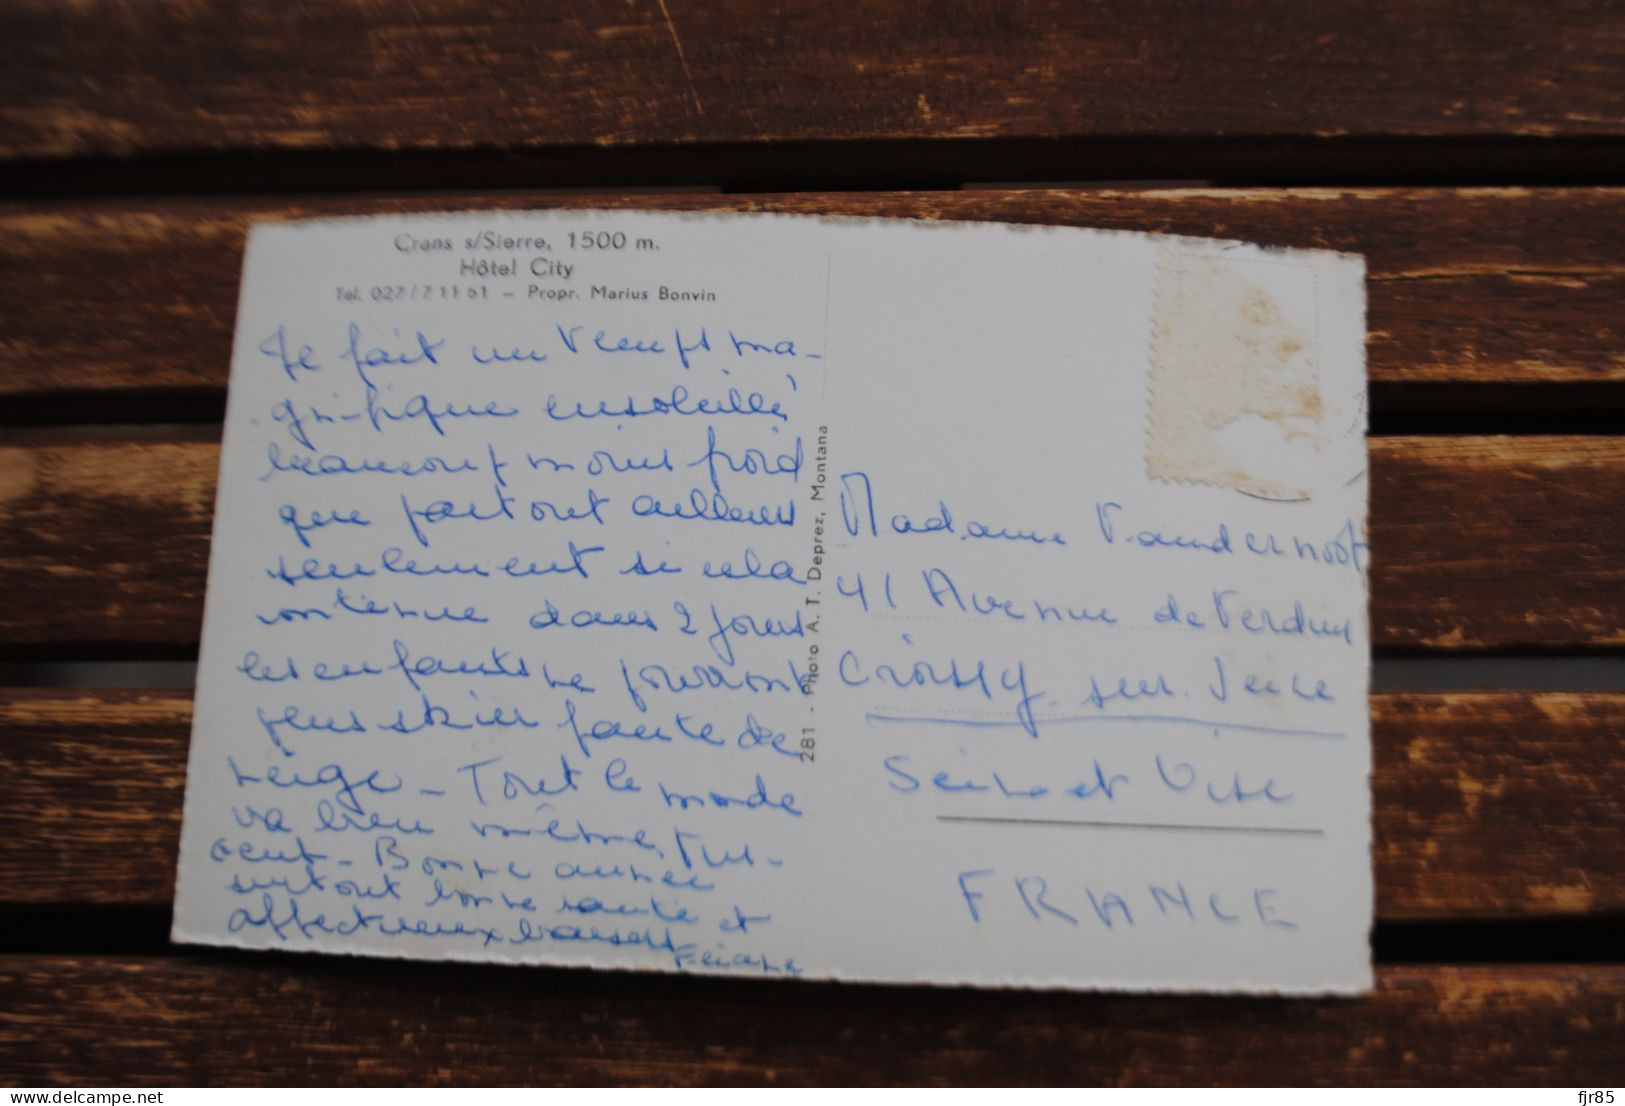 Crans s/Sierre, 1500 m.
Hôtel City
Tél. 027/7 11 61 – Propr. Marius Bonvin
fait un temps ma-
gnifique ensoleillé
beaucoup moins froid
que partout ailleurs
seulement si cela
continue dans 2 jours
les enfants ne pourront
plus skier faute de
neige – Tout le monde
va bien même
Bonne année
surtout bonne santé et
affectueux baisers
281 - Photo A. T. Deprez, Montana
Madame Vandernoot
41 Avenue de Verdun
Croissy sur Seine
Seine et Oise
FRANCE
Delcampe.net
fjr85